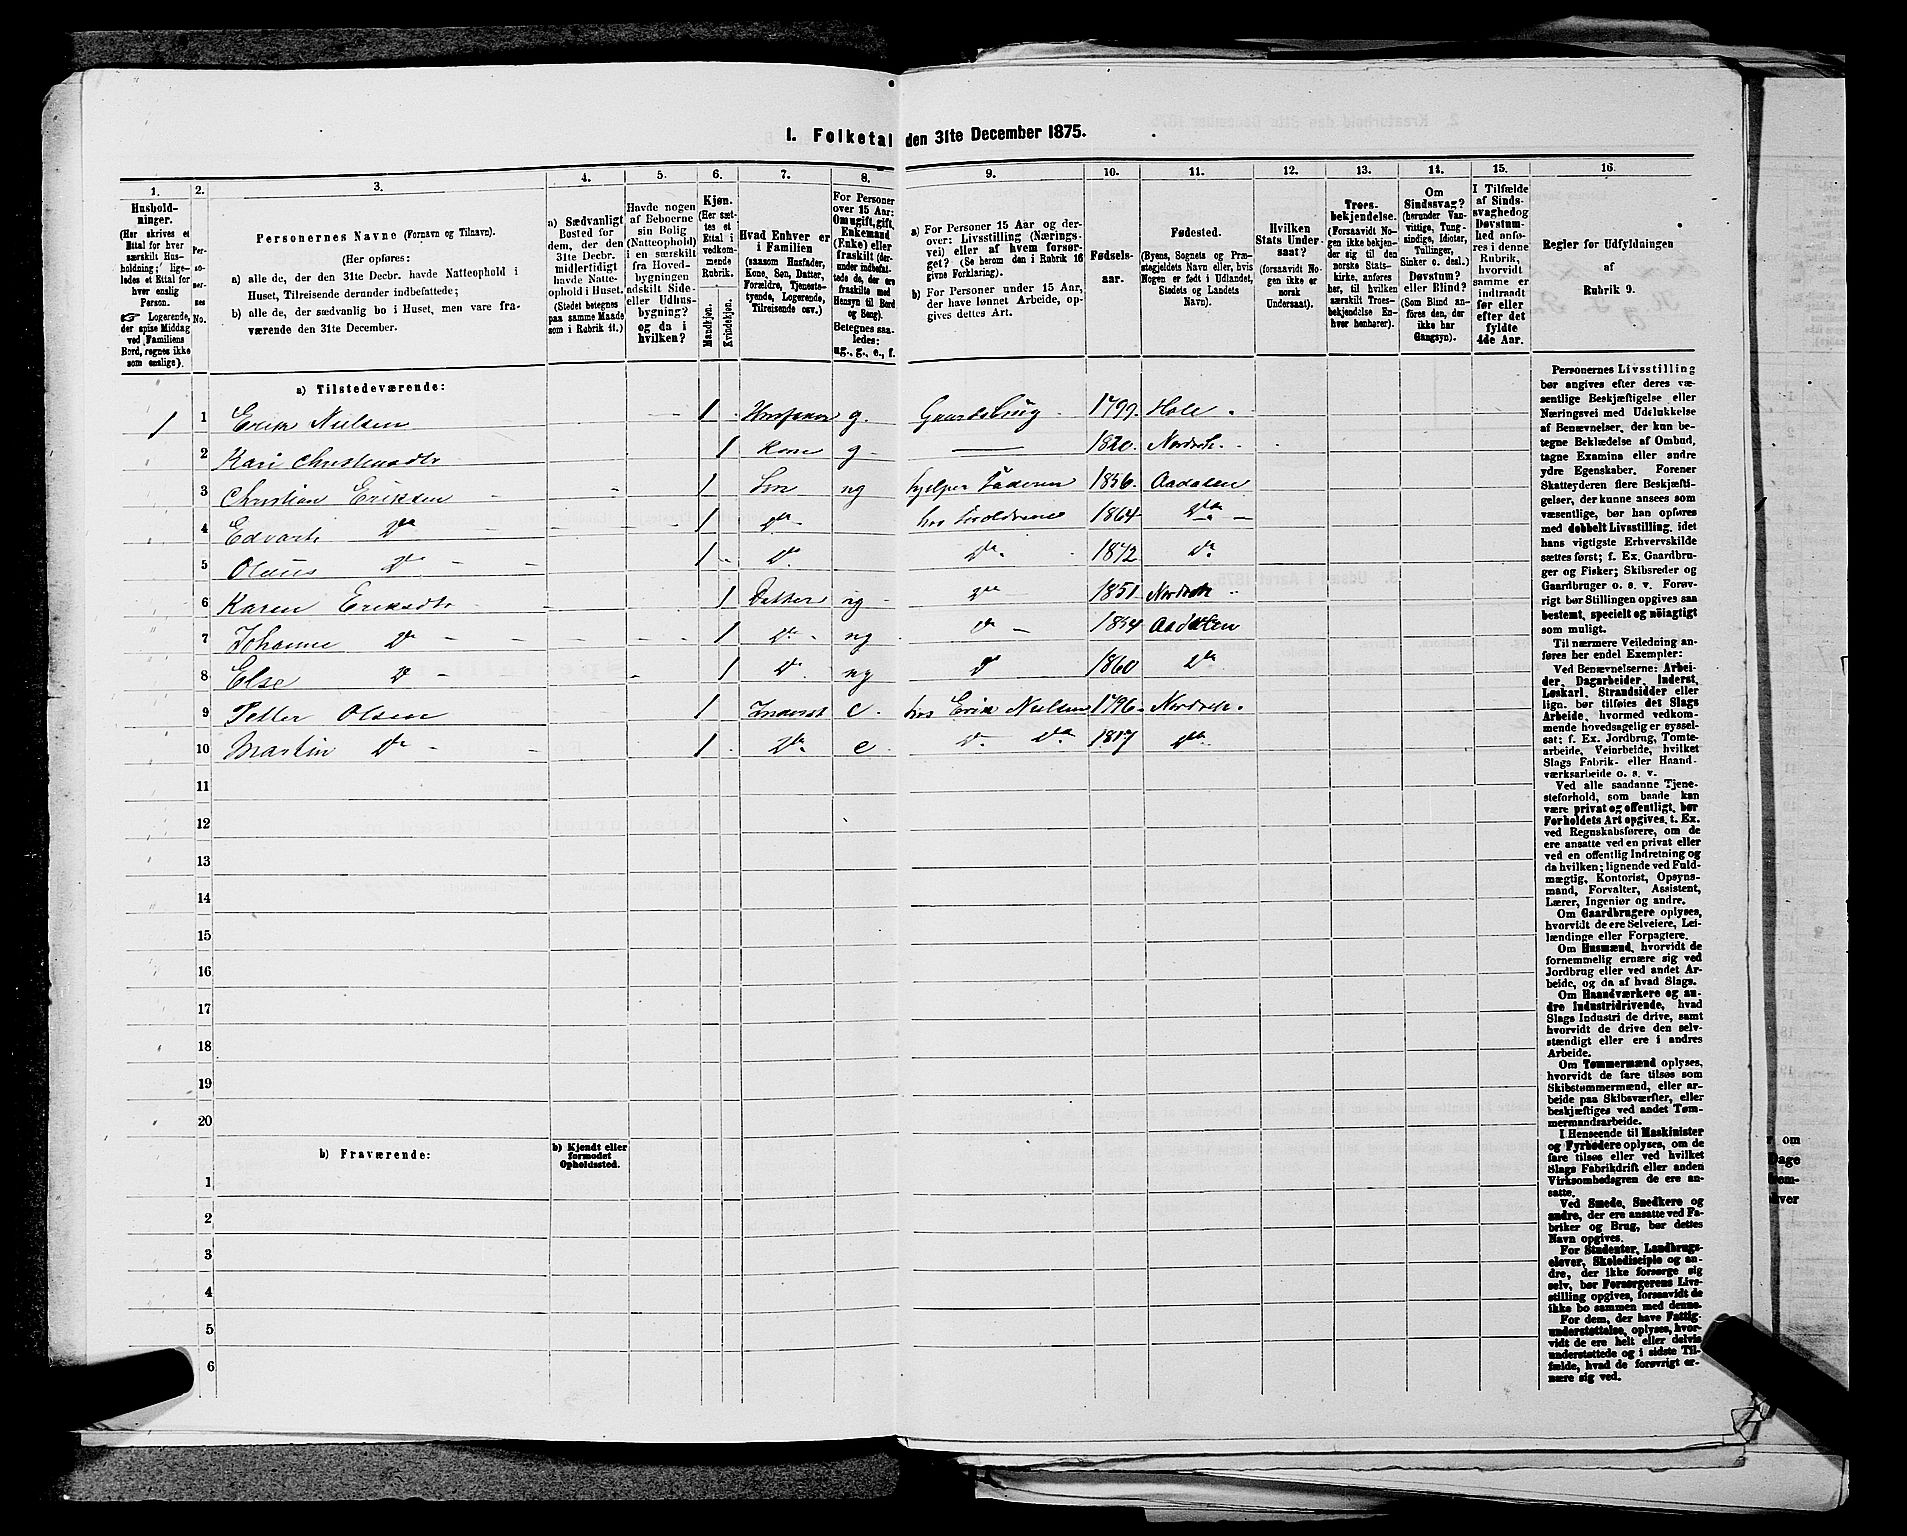 I. Folketal den 31te December 1875.
1. 2. 3. 4. 5. 6. 7. 8. 9. 10. 11. 12. 13. 14. 15. 16.
Hushold-
ninger.
(Her skrives et
Ettal for hver
særskilt Hus-
holdning; lige-
ledes et Ettal for
hver enslig
Person.
☞ Logerende,
der spise Middag
ved Familiens
Bord, regnes ikke
som enslige).
Per-
so-
ner-
nes
No.
Personernes Navne (Fornavn og Tilnavn).
(Her opføres:
a) alle de, der den 31te Decbr. havde Natteophold i
Huset, Tilreisende derunder indbefattede;
b) alle de, der sædvanlig bo i Huset, men vare fra-
værende den 31te December.
a) Sædvanligt
Bosted for
dem, der den
31te Decbr.
midlertidigt
havde Natte-
ophold i Huset.
(Stedet betegnes
paa samme Maade
som i Rubrik 11.)
Havde nogen
af Beboerne
sin Bolig
(Natteophold)
i en særskilt
fra Hoved-
bygningen
adskilt Side-
eller Udhus-
bygning?
og da i
hvilken?
Kjøn.
(Her sæt-
tes et
Ettal i
vedkom-
mende
Rubrik.
Mandkjøn.
Kvindekjøn.
Hvad Enhver er
i Familien
(saasom Husfader,
Kone, Søn, Datter,
Forældre, Tjeneste-
tyende, Logerende,
Tilreisende osv.)
For Personer
over 15 Aar:
Om ugift, gift,
Enkemand
(Enke) eller
fraskilt (der-
under indbefat-
tede de, der ere
fraskilte med
Hensyn til Bord
og Seng).
Betegnes saa-
ledes:
ug., g., e., f.
a) For Personer 15 Aar og der-
over: Livsstilling (Nærings-
vei) eller af hvem forsør-
get? (Se herom den i Rubrik 16
givne Forklaring).
b) For Personer under 15 Aar,
der have lønnet Arbeide, op-
gives dettes Art.
Fødsels-
aar.
Fødested.
(Byens, Sognets og Præ-
stegjeldets Navn eller, hvis
Nogen er født i Udlandet,
Stedets og Landets
Navn).
Hvilken
Stats Under-
saat?
(forsaavidt No-
gen ikke er
norsk
Undersaat).
Troes-
bekjendelse.
(Forsaavidt No-
gen ikke bekjen-
der sig til den
norske Stats-
kirke, anføres
her, til hvilken
særskilt Troes-
bekjendelse En-
hver henhører).
Om
Sindssvag?
(herunder Van-
vittige, Tung-
sindige, Idioter,
Tullinger,
Sinker o. desl.)
Døvstum?
eller Blind?
(Som Blind an-
føres den, der
ikke har
Gangsyn).
I Tilfælde
af Sinds-
svaghed og
Døvstum-
hed anfø-
res i denne
Rubrik,
hvorvidt
samme er
indtraadt
før eller
efter det
fyldte
4de Aar.
Regler for Udfyldningen
af
Rubrik 9.
a) Tilstedeværende:
1 1 Erik Nielsen 1 g. Gaardsbrug 1799. Hole
2 1 Kone g 1820. Nordreh.
3 Christian Eriksen 1 Søn ug hjelper Faderen 1856. Aadalen
4 Edvart Do 1 Do hos Forældrene 1864 Do
5 Olaus Do 1 Do Do 1872 Do
6 Karen Eriksdtr 1 Datter ug Do 1851 Nordreh
7 Johanne Do 1 Do ug Do 1854 Aadalen
8 Else Do 1 Do ug Do 1860 Do
9 Petter Olsen 1 Inderst e. hos Erik Nielsen 1796 Nordreh.
10 Martin Do 1 Do e Do Do 1817 Do
11
12
13
14
15
16
17
18
19
20
b) Fraværende:
b) Kjendt eller
formodet
Opholdssted.
1
2
3
4
5
6
Personernes Livsstilling
bør angives efter deres væ-
sentlige Beskjæftigelse eller
Næringsvei med Udelukkelse
af Benævnelser, der kun be-
tegne Beklædelse af Ombud,
tagne Examina eller andre
ydre Egenskaber. Forener
Skatteyderen flere Beskjæfti-
gelser, der kunne ansees som
væsentlige, bør han opføres
med dobbelt Livsstilling, idet
hans vigtigste Erhvervskilde
sættes først; f. Ex. Gaardbru-
ger og Fisker; Skibsreder og
Gaardbruger o. s. v. Forøv-
rigt bør Stillingen opgives saa
bestemt, specielt og nöiagtigt
som muligt.
Til nærmere Veiledning an-
føres her endel Exempler:
Ved Benævnelserne: Arbei-
der, Dagarbeider, Inderst,
Løskarl, Strandsidder eller
lign. bør tilføies det Slags
Arbeide, hvormed vedkom-
mende hovedsagelig er syssel-
sat; f. Ex. Jordbrug, Tomte-
arbeide, Veiarbeide, hvilket
Slags Fabrik- eller Haand-
værksarbeide o. s. v.
Ved alle saadanne Tjene-
steforhold, som baade kan
være privat og offentligt, bør
Forholdets Art opgives, t. Ex.
ved Regnskabsførere, om de
ere ansatte ved en privat eller
ved en offentlig Indretning og
da hvilken; lignende ved Fuld-
mægtig, Kontorist, Opsyns-
mand, Forvalter, Assistent,
Lærer, Ingeniør og andre.
Om Gaardbrugere oplyses,
hvorvidt de ere Selveiere, Lei-
lændinge eller Forpagtere.
Om Husmænd, hvorvidt de
fornemmelig ernære sig ved
Jordbrug eller ved andet Ar-
beide, og da af hvad Slags.
Om Haandværkere og an-
dre Industridrivende, hvad
Slags Industri de drive, samt
hvorvidt de drive den selv-
stændigt eller ere i andres
Arbeide.
Om Tømmermænd oplyses,
hvorvidt de fare tilsøs som
Skibstømmermænd, eller ar-
beide paa Skibsværfter, eller
beskjæftiges ved andet Tøm-
mermandsarbeide.
I Henseende til Maskinister
og Fyrbødere oplyses, om de
fare tilsøs eller ved hvilket
Slags Fabrikdrift eller anden
Virksomhedsgren de ere an-
satte.
Ved Smede, Snedkere og
andre, der ere ansatte ved Fa-
briker og Brug, bør dettes
Navn opgives.
For Studenter, Landbrugs-
elever, Skoledisciple og an-
dre, der ikke forsørge sig
selv, bør Forsørgerens Livs-
stilling opgives, forsaavidt de
ikke bo sammen med denne.
For dem, der have Fattig-
understøttelse, oplyses, hvor-
vidt de ere helt eller delvis
understøttede og i sidste Til-
fælde, hvad de forøvrigt er-
nære sig ved.